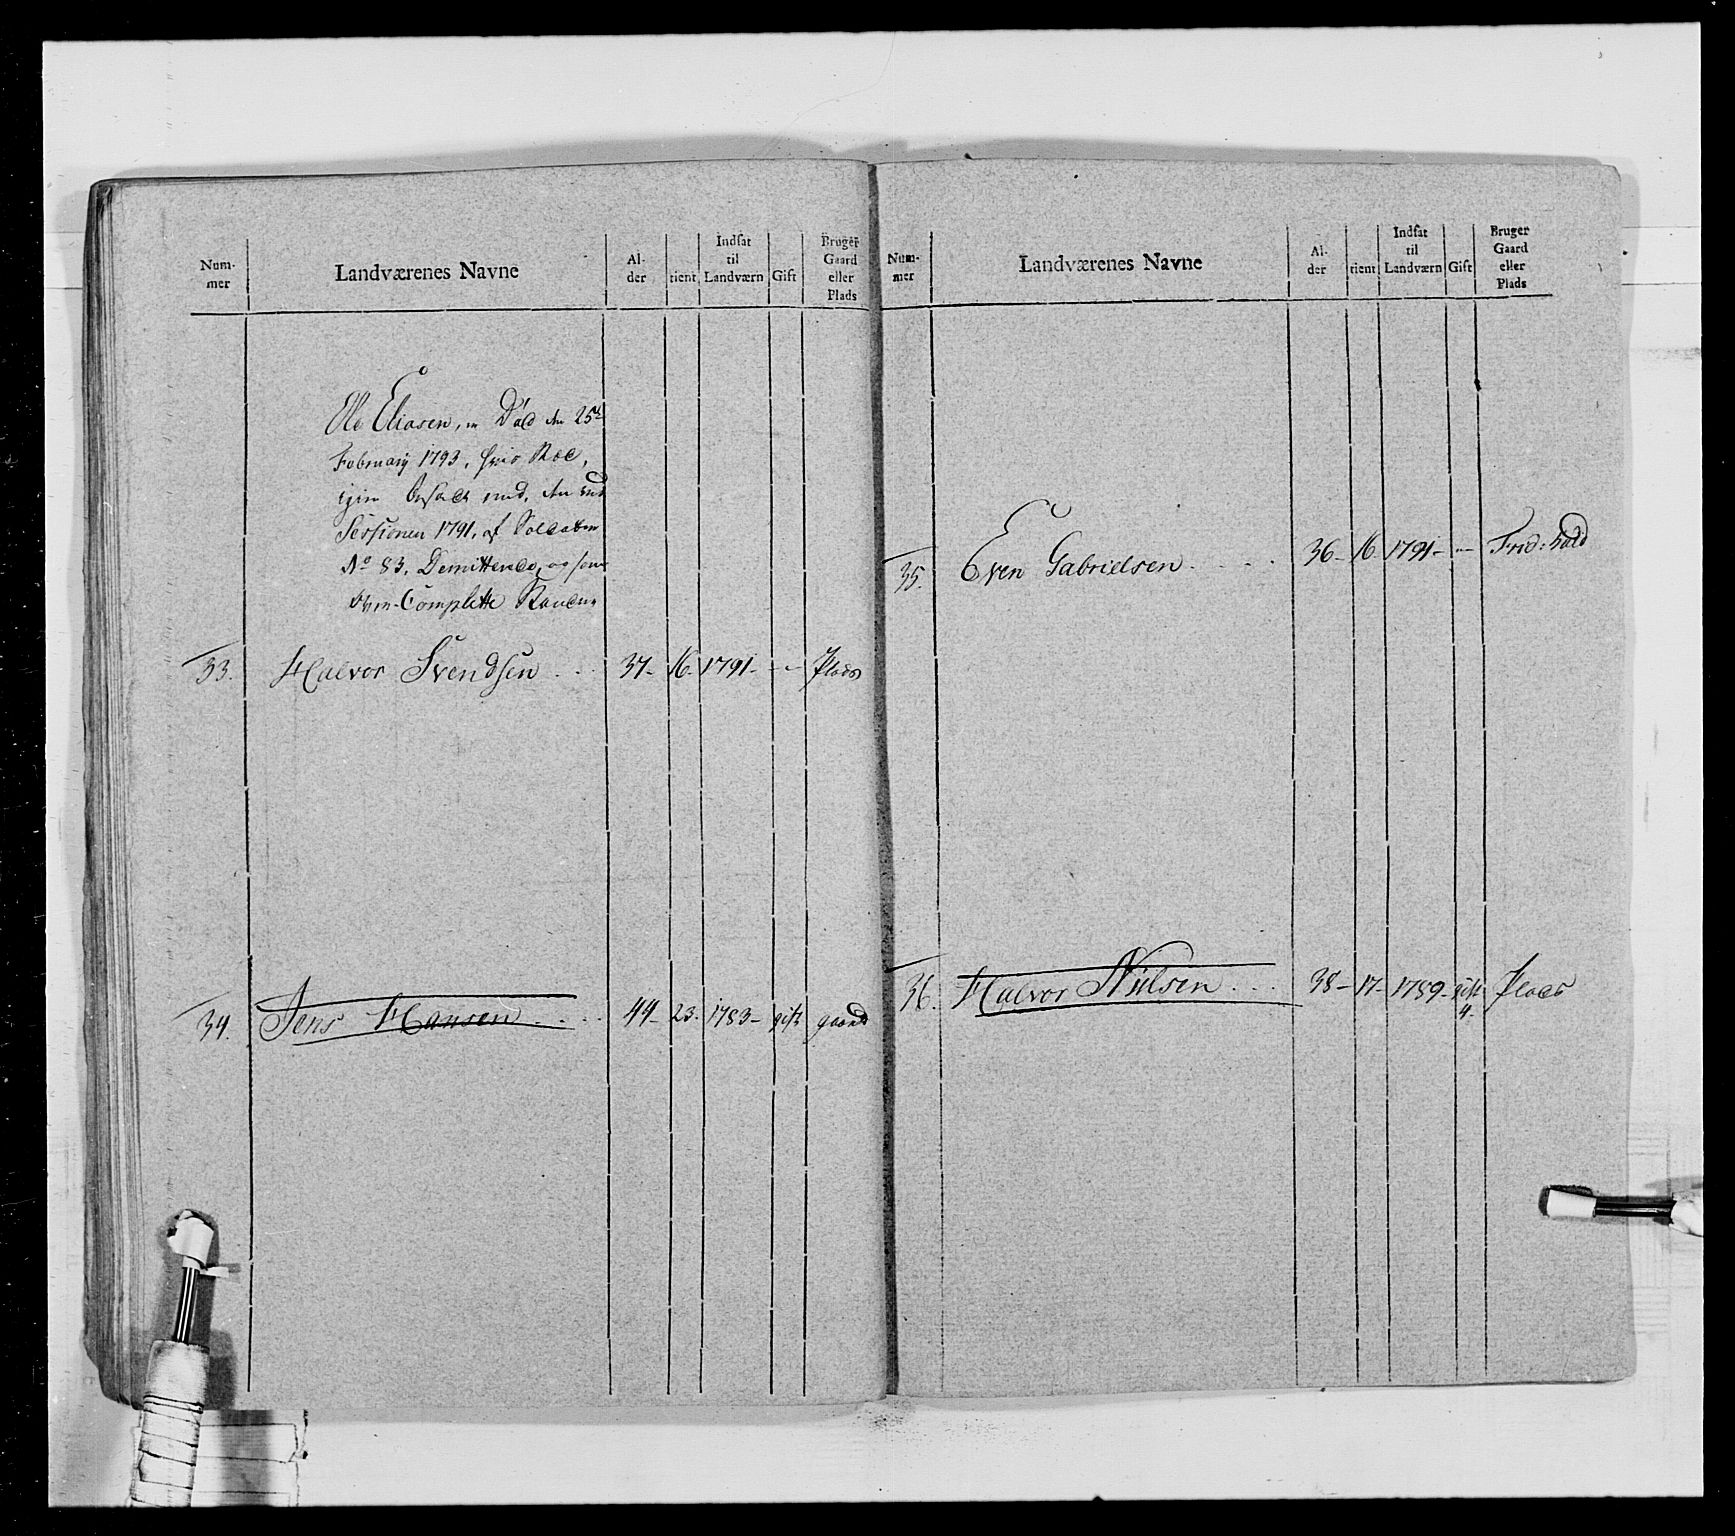 Num-
mer
Landværenes Navne
Al-
der
tient
Indsat
til
Landværn
Gift
Bruger
Gaard
eller
Plads
Ole Eliasen, er Död den 25de
February 1793, hvis Roe,
igien besadt med, den ved
Sessionen 1791, af Soldaten
No 83, Demitterede, og som
Over-Complette Staaende
33. Halvor Svendsen . . . 37- 16. 1791- - - Plads
34. Jens Hansen . . . . 44- 23. 1783- gift gaard
Num-
mer
Landværenes Navne
Al-
der
tient
Indsat
til
Landværn
Gift
Bruger
Gaard
eller
Plads
35 Even Gabrielsen . . . . 36- 16 1791- - - Frid: hald
36. Halvor Nielsen . . . 38- 17- 1789- gift Plads
4-